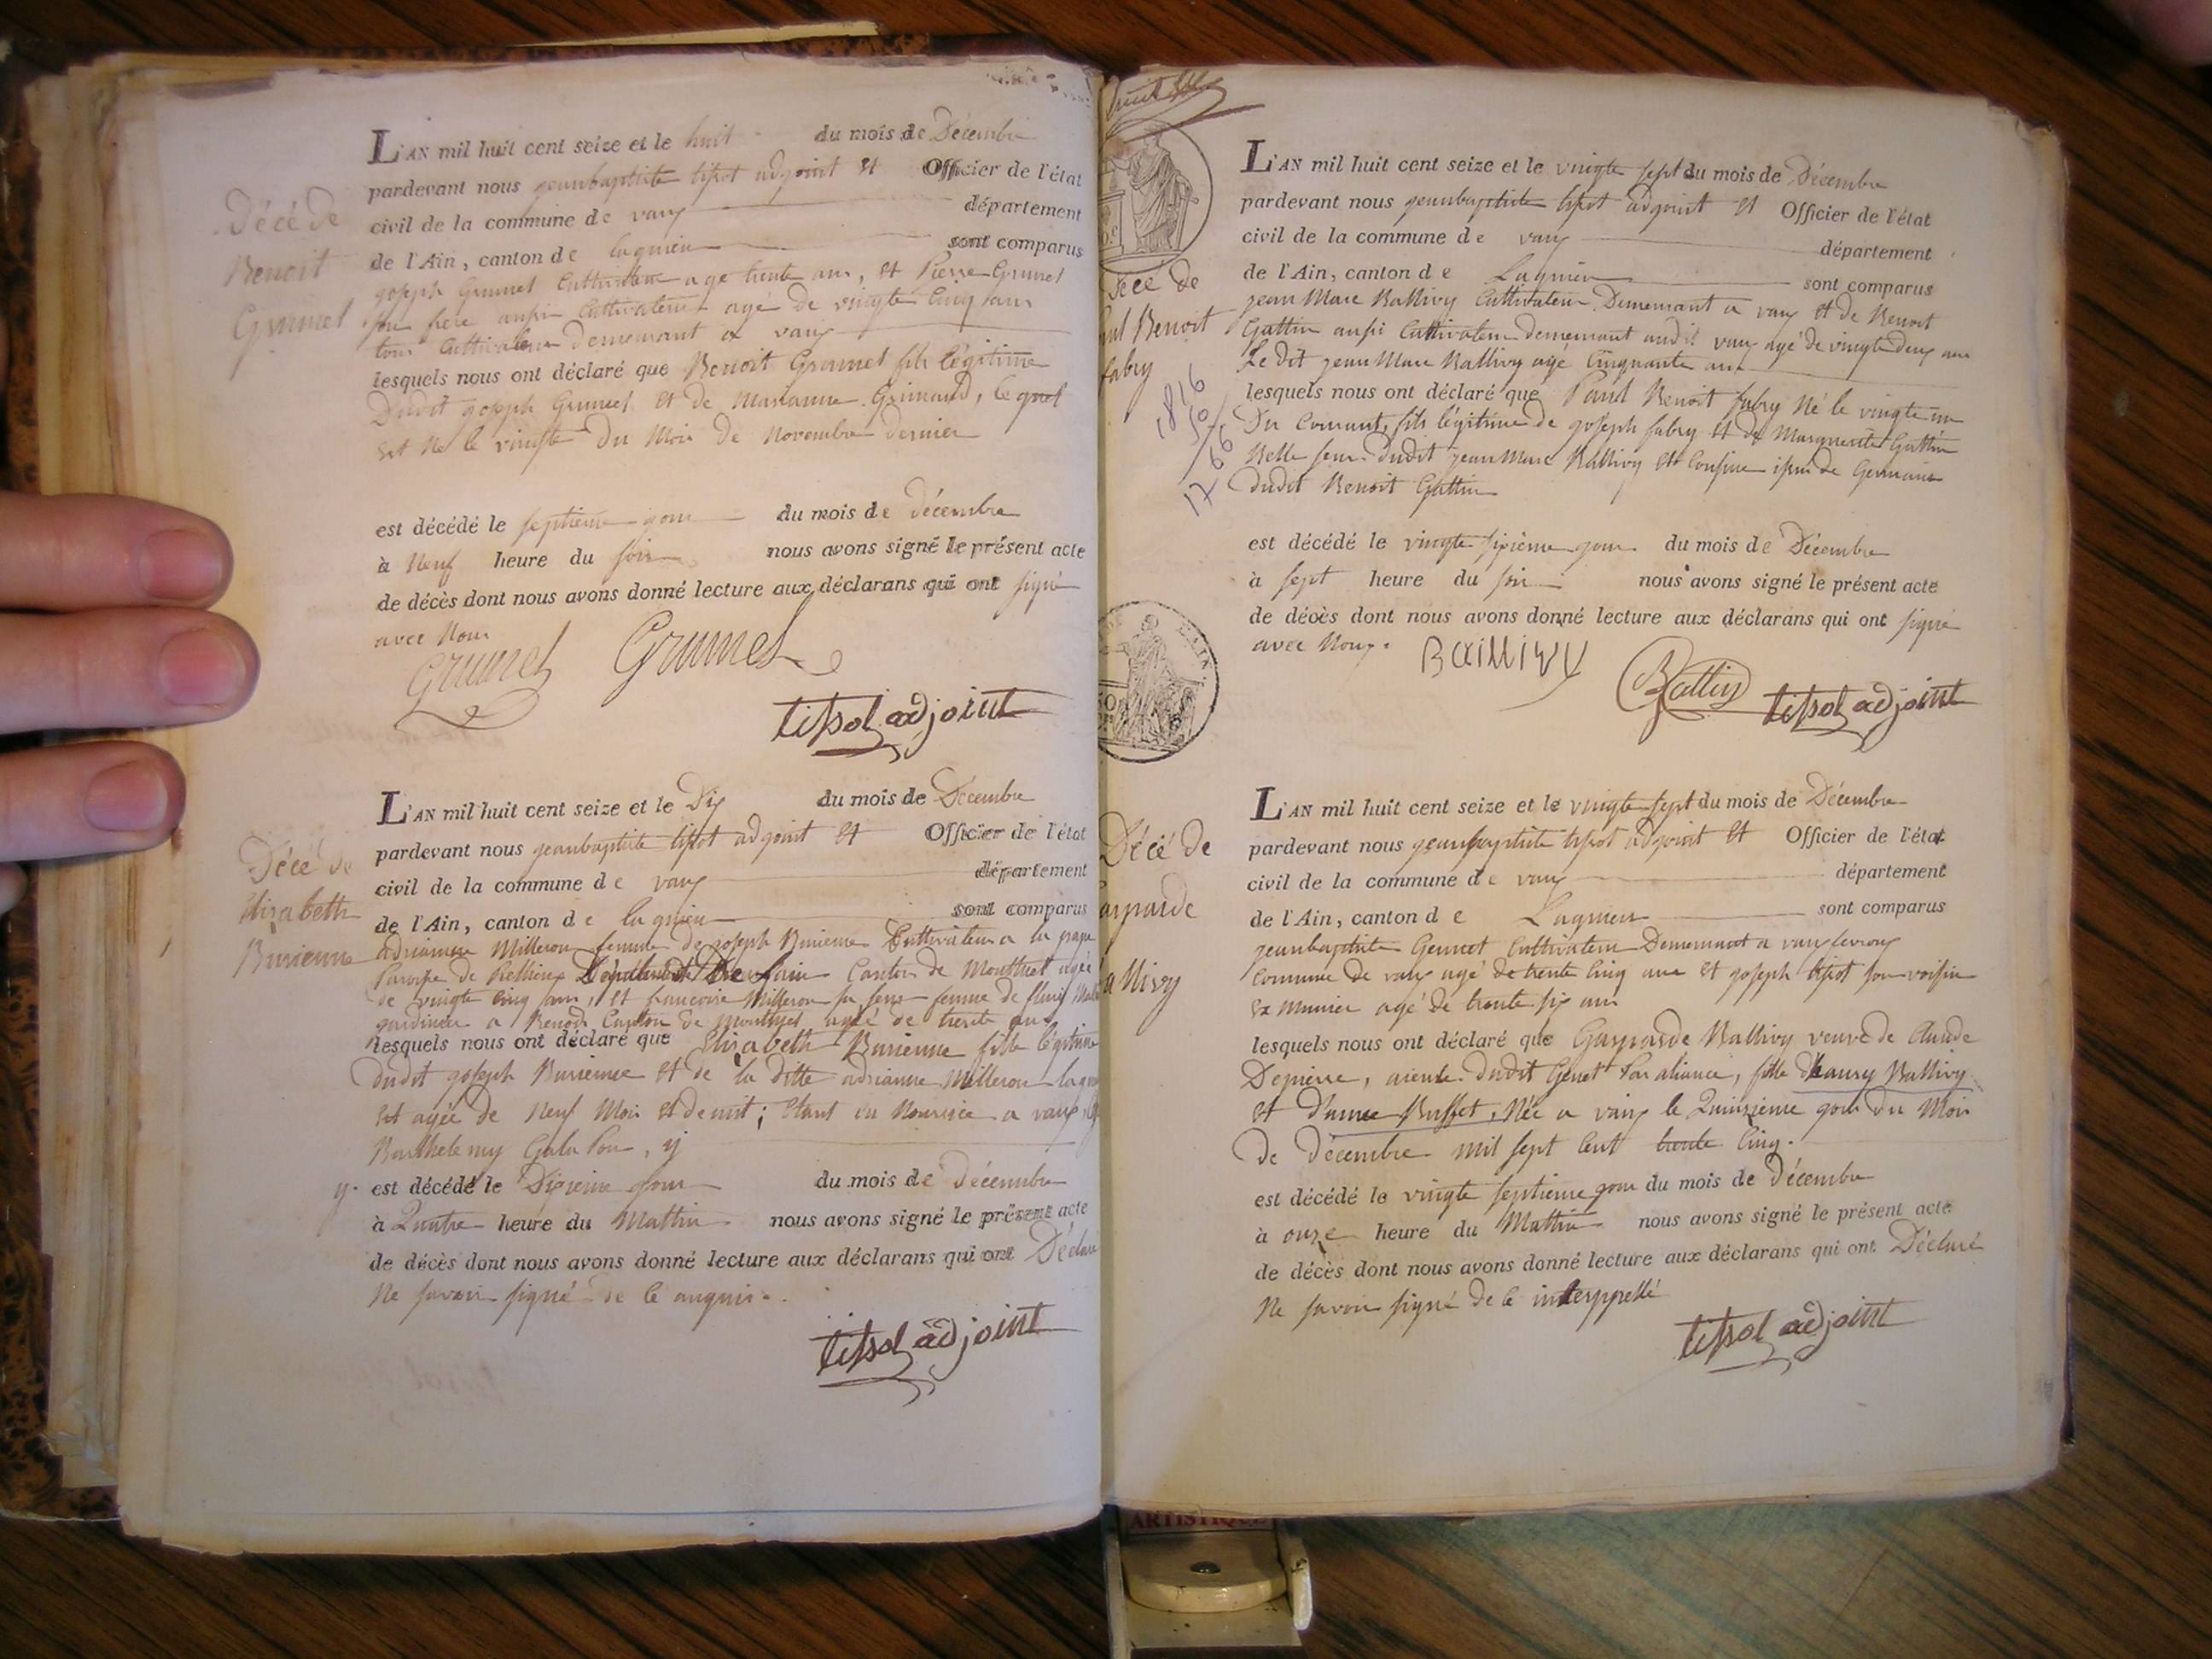 Décé de
Benoit
Grumel
L'AN mil huit cent seize et le huit du mois de Décembre
pardevant nous jeanbaptiste tissot adjoint et Officier de l'état
civil de la commune de vaux département
de l'Ain, canton de lagnieu sont comparus
joseph Grumel Cultivateur age trente ans, et Pierre Grumel
son frere aussi Cultivateur agé de vingte Cinq ans
tous Cultivateur demeurant a vaux
lesquels nous ont déclaré que Benoit Grumel fils légitime
Dudit joseph Grumel et de Marianne Grimaud, le quel
est Né le vingte Du Mois De Novembre dernier
est décédé le septieme jour du mois de décembre
à Neuf heure du soir nous avons signé le présent acte
de décès dont nous avons donné lecture aux déclarans qui ont signé
avec Nous
Grumel Grumel
tissot adjoint
Décé de
Elisabeth
Burienne
L'AN mil huit cent seize et le Dix du mois de Décembre
pardevant nous jeanbaptiste tissot adjoint et Officier de l'état
civil de la commune de vaux département
de l'Ain, canton de lagnieu sont comparus
adrianne Milleron femme de joseph Burienne Cultivateur a la
Paroisse de Département De l'ain Canton de Montluel agée
de vingte cinq ans, et francoise Milleron sa seur femme de
jardinier a Canton de Montluel agée de trente ans
lesquels nous ont déclaré que Elisabeth Burienne fille légitime
dudit joseph Burienne et de la ditte adrianne Milleron
est agée de Neuf Moi et demit; Etant en Nourisce a vaux
Barthelemy y
y. est décédé le Dixieme jour du mois de décembre
à Quatre heure du Mattin nous avons signé le présent acte
de décès dont nous avons donné lecture aux déclarans qui ont Déclaré
Ne savoir signé de ce
tissot adjoint
Décé de
Benoit
fabry
1816
50
1766
L'AN mil huit cent seize et le vingte sept du mois de Décembre
pardevant nous jeanbaptiste tissot adjoint et Officier de l'état
civil de la commune de vaux département
de l'Ain, canton de Lagnieu sont comparus
jean Marc Ballivy Cultivateur Demeurant a vaux et de Benoit
Gattin aussi Cultivateur demeurant audit vaux agé de vingte deux ans
Le dit jean Marc Ballivy agé Cinquante ans
lesquels nous ont déclaré que Paul Benoit fabry Né le vingte un
Du Courant, fils légitime de joseph fabry et de Marguerite Gattin
Belle seur dudit jean Marc Ballivy et Cousine issus de Germain
dudit Benoit Gattin
est décédé le vingte sixième jour du mois de Décembre
à sept heure du soir nous avons signé le présent acte
de décès dont nous avons donné lecture aux déclarans qui ont signé
avec Nous.
BaIllivy Gattin tissot adjoint
Décé de
L'AN mil huit cent seize et le vingte sept du mois de Décembre
pardevant nous jeanbaptiste tissot adjoint et Officier de l'état
civil de la commune de vaux département
de l'Ain, canton de Lagnieu sont comparus
jeanbaptiste Genet Cultivateur Demeurant a vaux
commune de vaux agé de trente Cinq ans et joseph tissot son voisin
agé de trente six ans
lesquels nous ont déclaré que Gasparde Ballivy veuve de Claude
Depierre, dudit Genet Par aliance, fille Ballivy
et d'anne Buffet, Née a vaux le Quinzieme jour du Moi
de Décembre mil sept Cent trente Cinq.
est décédé le vingte septieme jour du mois de Décembre
à onze heure du Mattin nous avons signé le présent acte
de décès dont nous avons donné lecture aux déclarans qui ont Déclaré
Ne savoir signé de ce interppellé
tissot adjoint
ARTISTIQUE